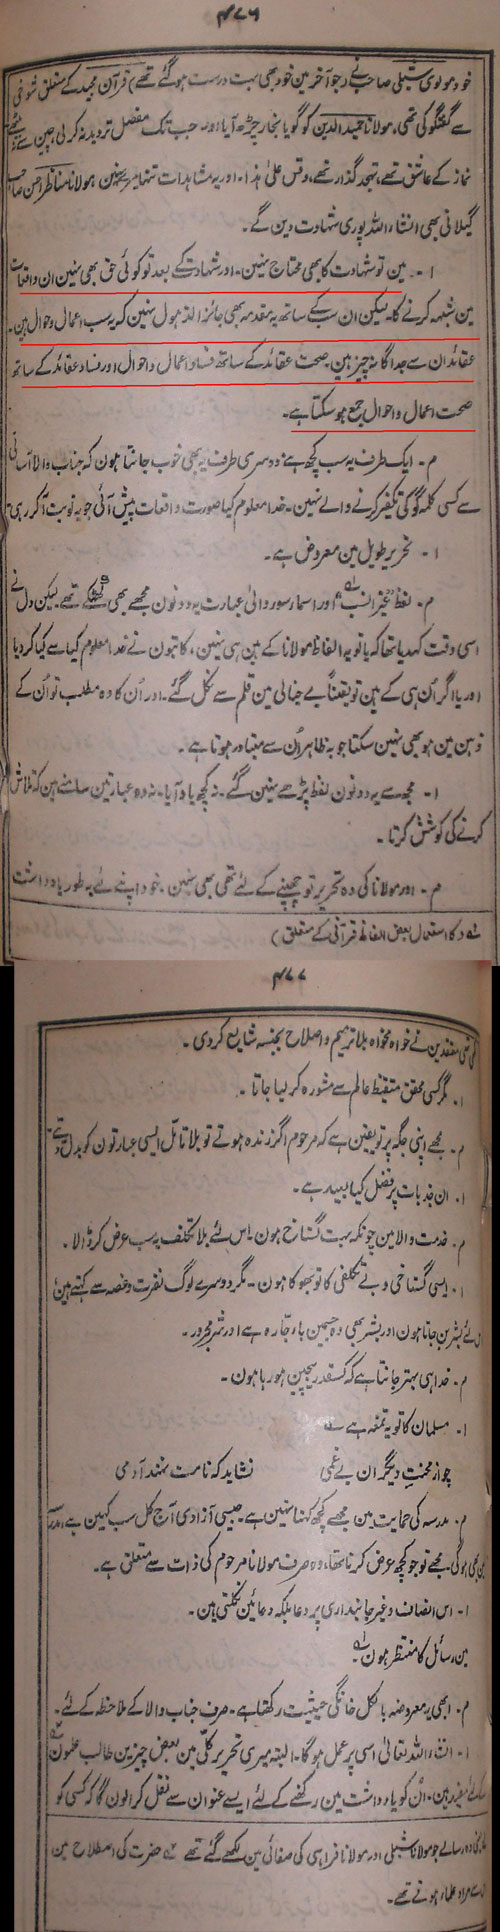 ۴۷۶
خود مولوی شبلی صاحب نے (جو آخر مین خود بھی بہت درست ہو گئے تھے) قرآن مجید کے متعلق شوخی
سے گفتگو کی تھی، مولانا حمید الدین کو گویا بخار چڑھ آیا، اور جب تک مفصل تردید نہ کر لی، چین سے نہ بیٹھے
نماز کے عاشق تھے، تہجد گذار تھے، وقس علیٰ ہذا۔ اور یہ مشاہدات تنہا میرے نہین مولانا مناظر احسن صاحب
گیلانی بھی انشاء اللہ پوری شہادت دین گے۔
ا۔ مین تو شہادت کا بھی محتاج نہین۔ اور شہادت کے بعد تو کوئی حق بھی نہین ان واقعات
مین شبہہ کرنے کا۔ لیکن ان سب کے ساتھ یہ مقدمہ بھی جائز الذہول نہین کہ یہ سب اعمال و احوال ہین۔
عقائد ان سے جداگانہ چیز ہین۔ صحت عقائد کے ساتھ فساد اعمال و احوال اور فساد عقائد کے ساتھ
صحت اعمال و احوال جمع ہو سکتا ہے۔
م۔ ایک طرف یہ سب کچھ ہے، دوسری طرف یہ بھی خوب جانتا ہون کہ جناب والا آسانی
سے کسی کلمہ گو کی تکفیر کرنے والے نہین۔ خدا معلوم کیا صورت واقعات پیش آئی جو یہ نوبت آ کر رہی
ا۔ تحریر طویل مین معروض ہے۔
م۔ لفظ اور اسمار سور والی عبارت یہ دونون مجھے بھی کھٹکے تھے لیکن دل نے
اسی وقت کہدیا تھا کہ یا تو یہ الفاظ مولانا کے ہین ہی نہین، کاتبون نے خدا معلوم کیا سے کیا کر دیا
اور یا اگر ان ہی کے ہین تو یقیناً بے خیالی مین قلم سے نکل گئے۔ اور اُن کا وہ مطلب تو اُن کے
ذہن مین ہو بھی نہین سکتا جو بہ ظاہر اُن سے متبادر ہوتا ہے۔
ا۔ مجھ سے یہ دونون لفظ پڑھے نہین گئے۔ نہ کچھ یاد آیا۔ نہ وہ عبارتین سامنے ہین کہ تلاش
کرنے کی کوشش کرتا۔
م۔ اور مولانا کی وہ تحریر تو چھپنے کے لئے تھی بھی نہین۔ خود اپنے لئے بہ طور یادداشت
لہ (کا استعمال بعض الفاظ قرآنی کے متعلق)
۴۷۷
معتقدین نے خواہ مخواہ بلا ترمیم و اصلاح بجنسہ شایع کر دی۔
ا۔ مگر کسی محقق متیقظ عالم سے مشورہ کر لیا جاتا۔
م۔ مجھے اپنی جگہ پر تو یقین ہے کہ مرحوم اگر زندہ ہوتے تو بلا تامل ایسی عبارتون کو بدل دیتے
ا۔ ان جذبات پر فضل کیا بعید ہے۔
م۔ خدمت والا مین چونکہ بہت گستاخ ہون۔ اس لئے بلا تکلف یہ سب عرض کر ڈالا۔
ا۔ ایسی گستاخی و بے تکلفی کا تو بھوکا ہون۔ مگر دوسرے لوگ نفرت و غصہ سے کہتے ہین
اس لئے بشر بن جاتا ہون اور بشر بھی وہ جسمین باء جارہ ہے اور شر مجرور۔
م۔ خدا ہی بہتر جانتا ہے کہ کسقدر بیچین ہو رہا ہون۔
ا۔ مسلمان کا تو یہ تمغہ ہے ؎
چو از محنتِ دیگران بے غمی نشاید کہ نامت نہند آدمی
م۔ مدرسہ کی حمایت مین مجھے کچھ کہنا نہین ہے۔ جیسی آزادی آج کل سب کہین ہے، مدرسہ
مین بھی ہوگی۔ مجھے تو جو کچھ عرض کرنا تھا، وہ صرف مولانا مرحوم کی ذات سے متعلق ہے۔
ا۔ اس انصاف و غیر جانبداری پر دعا بلکہ دعائین نکلتی ہین۔
مین رسائل کا منتظر ہون لہ
م۔ ابھی یہ معروضہ بالکل خانگی حیثیت رکھتا ہے۔ صرف جناب والا کے ملاحظہ کے لئے۔
ا۔ انشاء اللہ تعالیٰ اسی پر عمل ہو گا۔ البتہ میری تحریر کلی مین بعض چیزین طالب علمون
کے لئے مفید ہین۔ ان کو یادداشت مین رکھنے کے لئے ایسے عنوان سے نقل کرا لون گا کہ کسی کو
وہ رسالے جو مولانا شبلی اور مولانا فراہی کی صفائی مین لکھے گئے تھے ۲؎ حضرت کی اصطلاح مین
سے مراد علماء ہوتے تھے۔